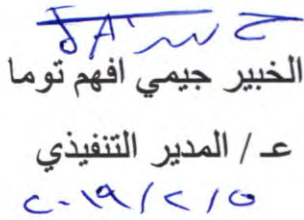 الخبير جيمي افهم توما
عـ / المدير التنفيذي
٢٠١٩/٢/٥